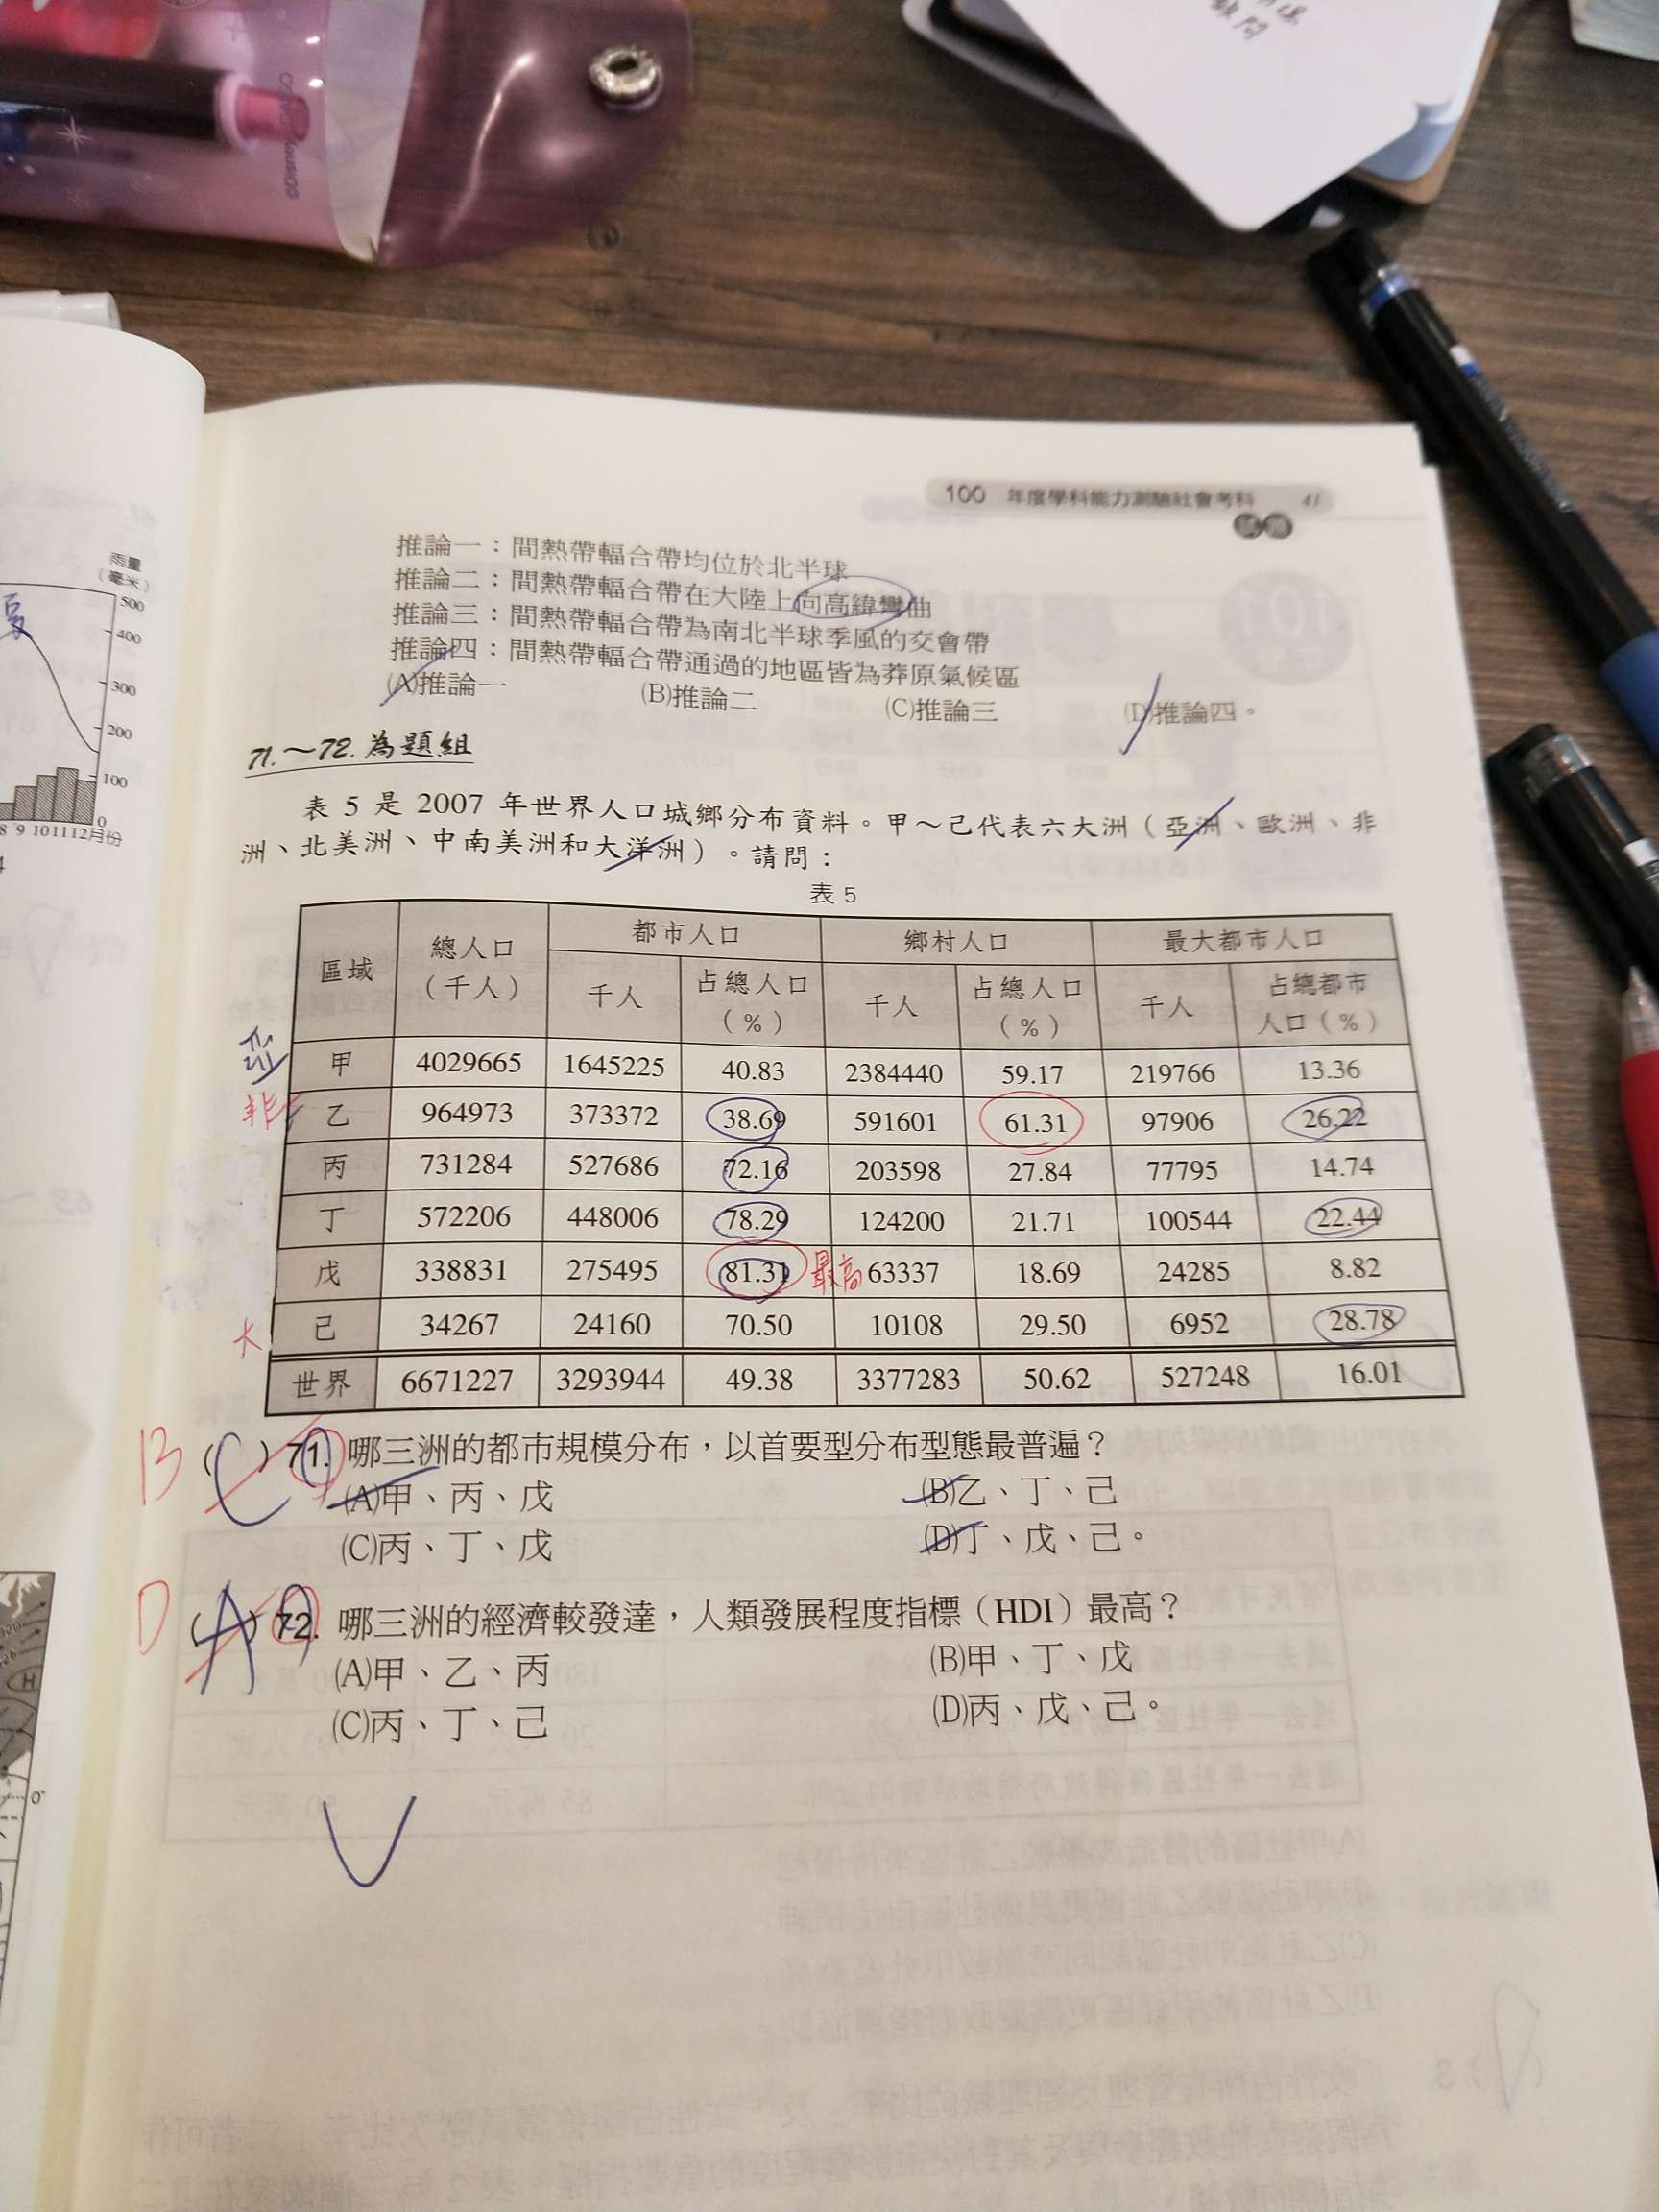 100 年度學科能力測驗社會考科 41
試題
推論一：間熱帶輻合帶均位於北半球
推論二：間熱帶輻合帶在大陸上向高緯彎曲
推論三：間熱帶輻合帶為南北半球季風的交會帶
推論四：間熱帶輻合帶通過的地區皆為莽原氣候區
(A)推論一 (B)推論二 (C)推論三 (D)推論四。
71.～72.為題組
表 5 是 2007 年世界人口城鄉分布資料。甲～己代表六大洲（亞洲、歐洲、非
洲、北美洲、中南美洲和大洋洲）。請問：
表 5
區域 總人口（千人） 都市人口 鄉村人口 最大都市人口
千人 占總人口（%） 千人 占總人口（%） 千人 占總都市人口（%）
亞 甲 4029665 1645225 40.83 2384440 59.17 219766 13.36
非 乙 964973 373372 38.69 591601 61.31 97906 26.22
丙 731284 527686 72.16 203598 27.84 77795 14.74
丁 572206 448006 78.29 124200 21.71 100544 22.44
戊 338831 275495 81.31 最高 63337 18.69 24285 8.82
大 己 34267 24160 70.50 10108 29.50 6952 28.78
世界 6671227 3293944 49.38 3377283 50.62 527248 16.01
B (C) 71. 哪三洲的都市規模分布，以首要型分布型態最普遍？
(A)甲、丙、戊 (B)乙、丁、己
(C)丙、丁、戊 (D)丁、戊、己。
D (A) 72. 哪三洲的經濟較發達，人類發展程度指標（HDI）最高？
(A)甲、乙、丙 (B)甲、丁、戊
(C)丙、丁、己 (D)丙、戊、己。
雨量
（毫米）
500
400
300
200
100
0
8 9 10 11 12月份
夏
H
0°